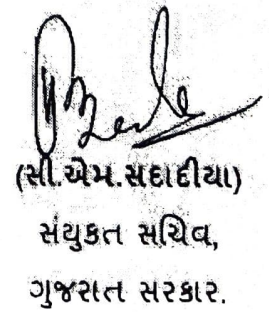 (સી.એમ.સદાદીયા)
સંયુકત સચિવ,
ગુજરાત સરકાર.